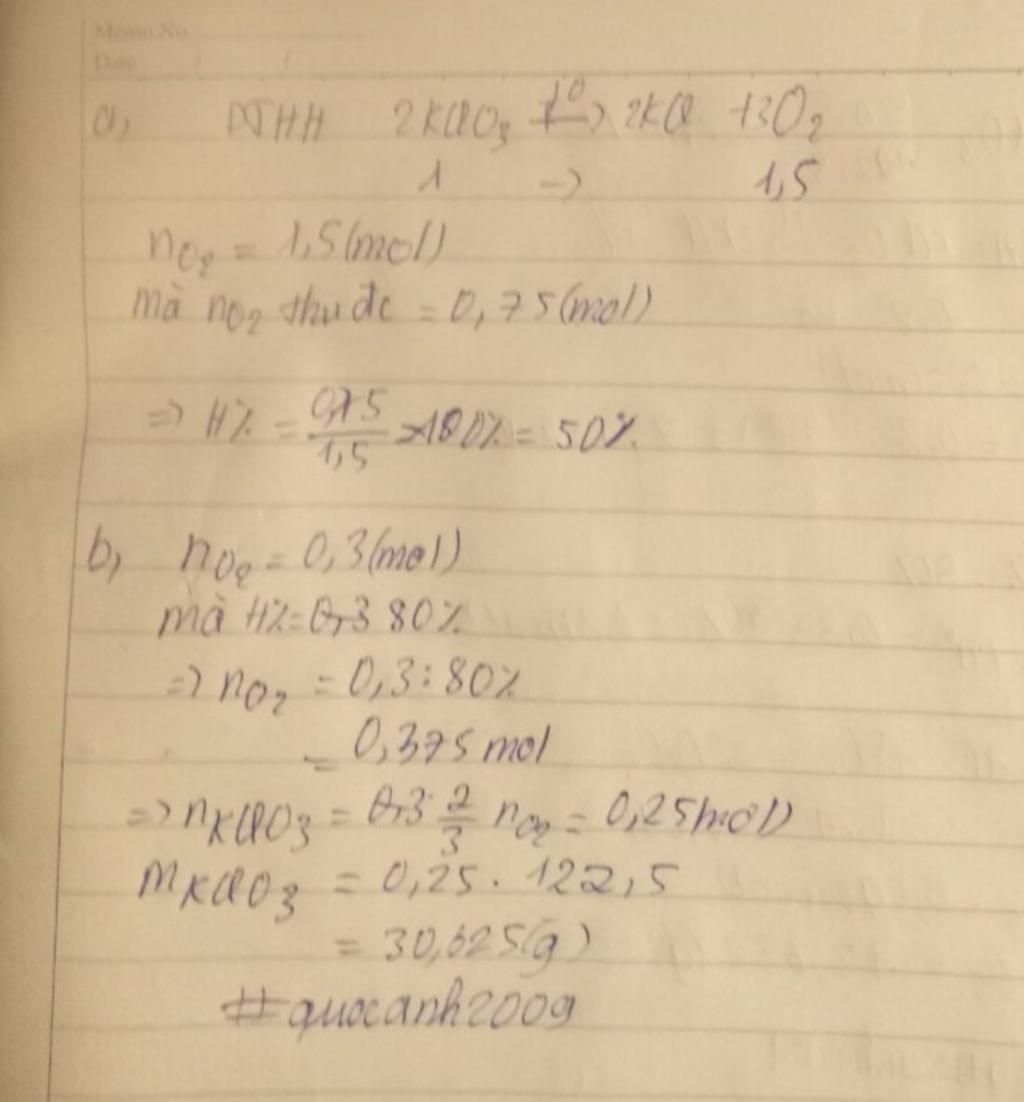 Memo No.
Date / /
a, PTHH 2KClO3 t°→ 2KCl +3O2
1 → 1,5
nO2 = 1,5(mol)
mà nO2 thu đc = 0,75(mol)
=> H% = 0,75/1,5 ×100% = 50%.
b, nO2 = 0,3(mol)
mà H%= 0,3 80%
=> nO2 = 0,3:80%
= 0,375 mol
=> nKClO3 = 0,3. 2/3 nO2 = 0,25mol)
mKClO3 = 0,25. 122,5
= 30,625(g)
#quocanh2009